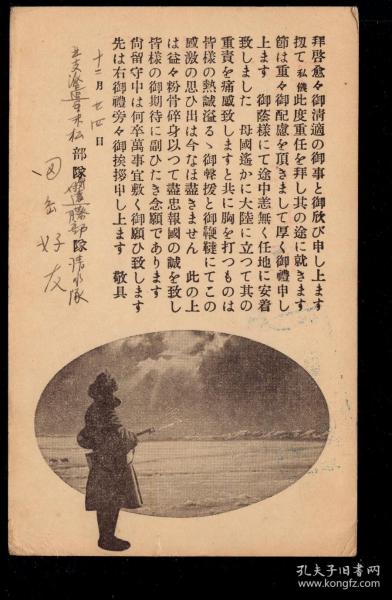 拜啓愈々御清適の御事と御欣び申し上ます
扨て私儀此度重任を拜し其の途に就きます
節は重々御配慮を頂きまして厚く御禮申し
上ます 御蔭樣にて途中恙無く任地に安着
致しました 母國遙かに大陸に立つて其の
重責を痛感致しますと共に胸を打つものは
皆樣の熱誠溢るゝ御聲援と御鞭韃にてこの
感激の思ひ出は今なほ盡きません 此の上
は益々粉骨碎身以つて盡忠報國の誠を致し
皆樣の御期待に副ひたき念願であります
尙留守中は何卒萬事宜敷く御願ひ致します
先は右御禮旁々御挨拶申し上ます 敬具
十二月廿四日
末松部隊遠藤部隊清水隊
好友
孔夫子旧书网